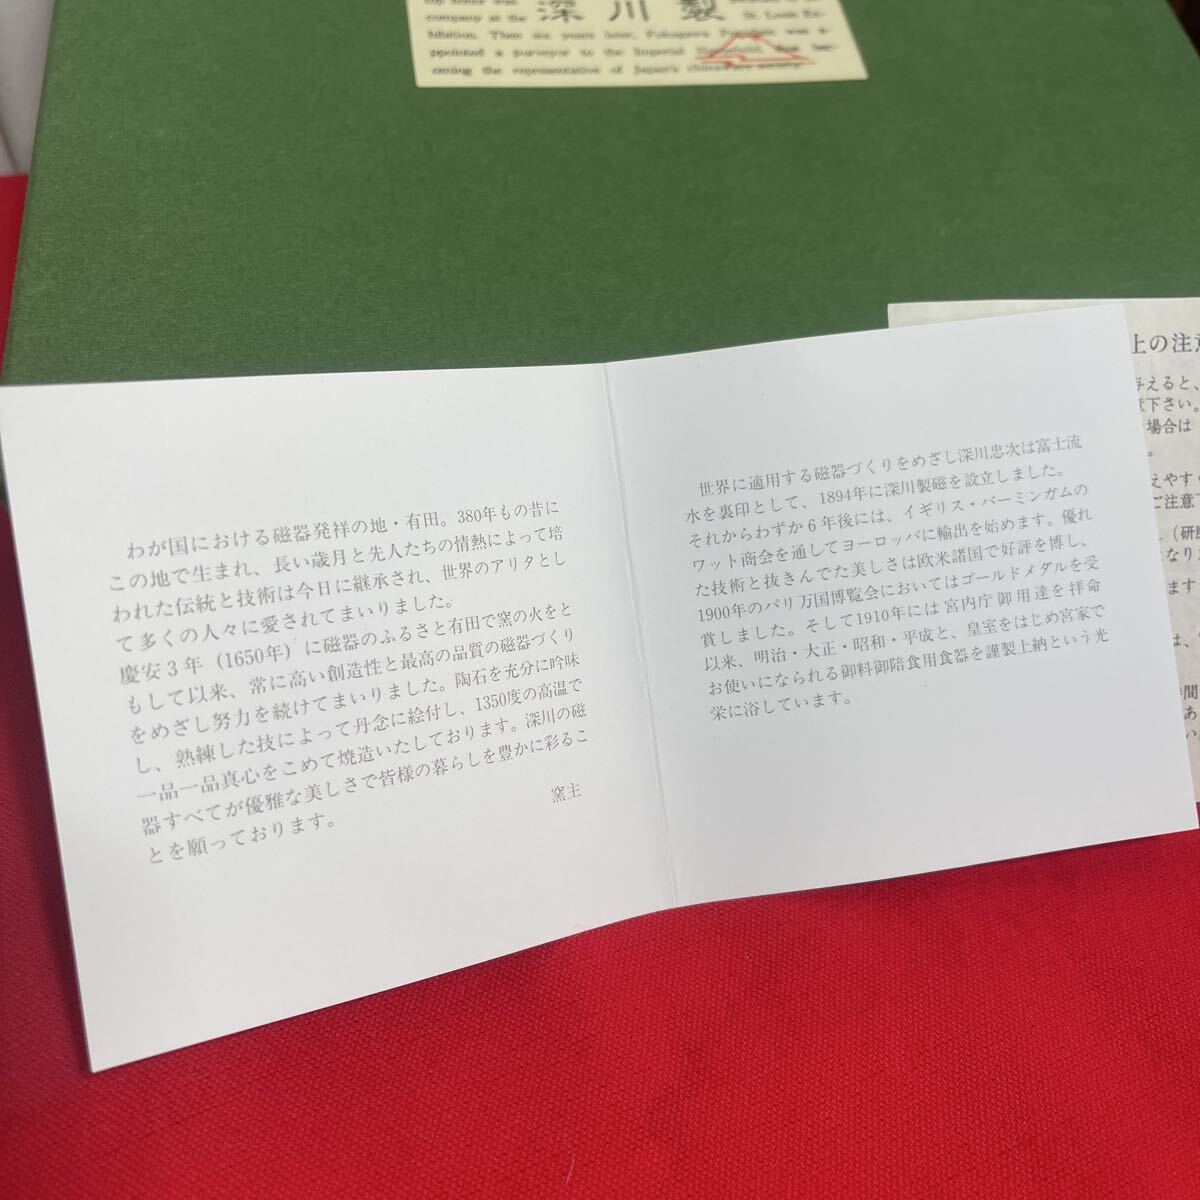 company at the 深川製 St. Louis Ex-
hibition. Then six years later, Fukagawa Porcelain was a-
ppointed a purveyor to the Imperial Household, thus be-
coming the representative of Japan's chinaware society.
わが国における磁器発祥の地・有田。380年もの昔に
この地で生まれ、長い歳月と先人たちの情熱によって培
われた伝統と技術は今日に継承され、世界のアリタとし
て多くの人々に愛されてまいりました。
慶安3年（1650年）に磁器のふるさと有田で窯の火をと
もして以来、常に高い創造性と最高の品質の磁器づくり
をめざし努力を続けてまいりました。陶石を充分に吟味
し、熟練した技によって丹念に絵付し、1350度の高温で
一品一品真心をこめて焼造いたしております。深川の磁
器すべてが優雅な美しさで皆様の暮らしを豊かに彩るこ
とを願っております。
窯主
世界に適用する磁器づくりをめざし深川忠次は富士流
水を裏印として、1894年に深川製磁を設立しました。
それからわずか6年後には、イギリス・バーミンガムの
ワット商会を通してヨーロッパに輸出を始めます。優れ
た技術と抜きんでた美しさは欧米諸国で好評を博し、
1900年のパリ万国博覧会においてはゴールドメダルを受
賞しました。そして1910年には宮内庁御用達を拝命
以来、明治・大正・昭和・平成と、皇室をはじめ宮家で
お使いになられる御料御陪食用食器を謹製上納という光
栄に浴しています。
上の注意
与えると、
意下さい。
場合は
えやすく
ご注意
（研磨
になり
ます
は、
時間
あ